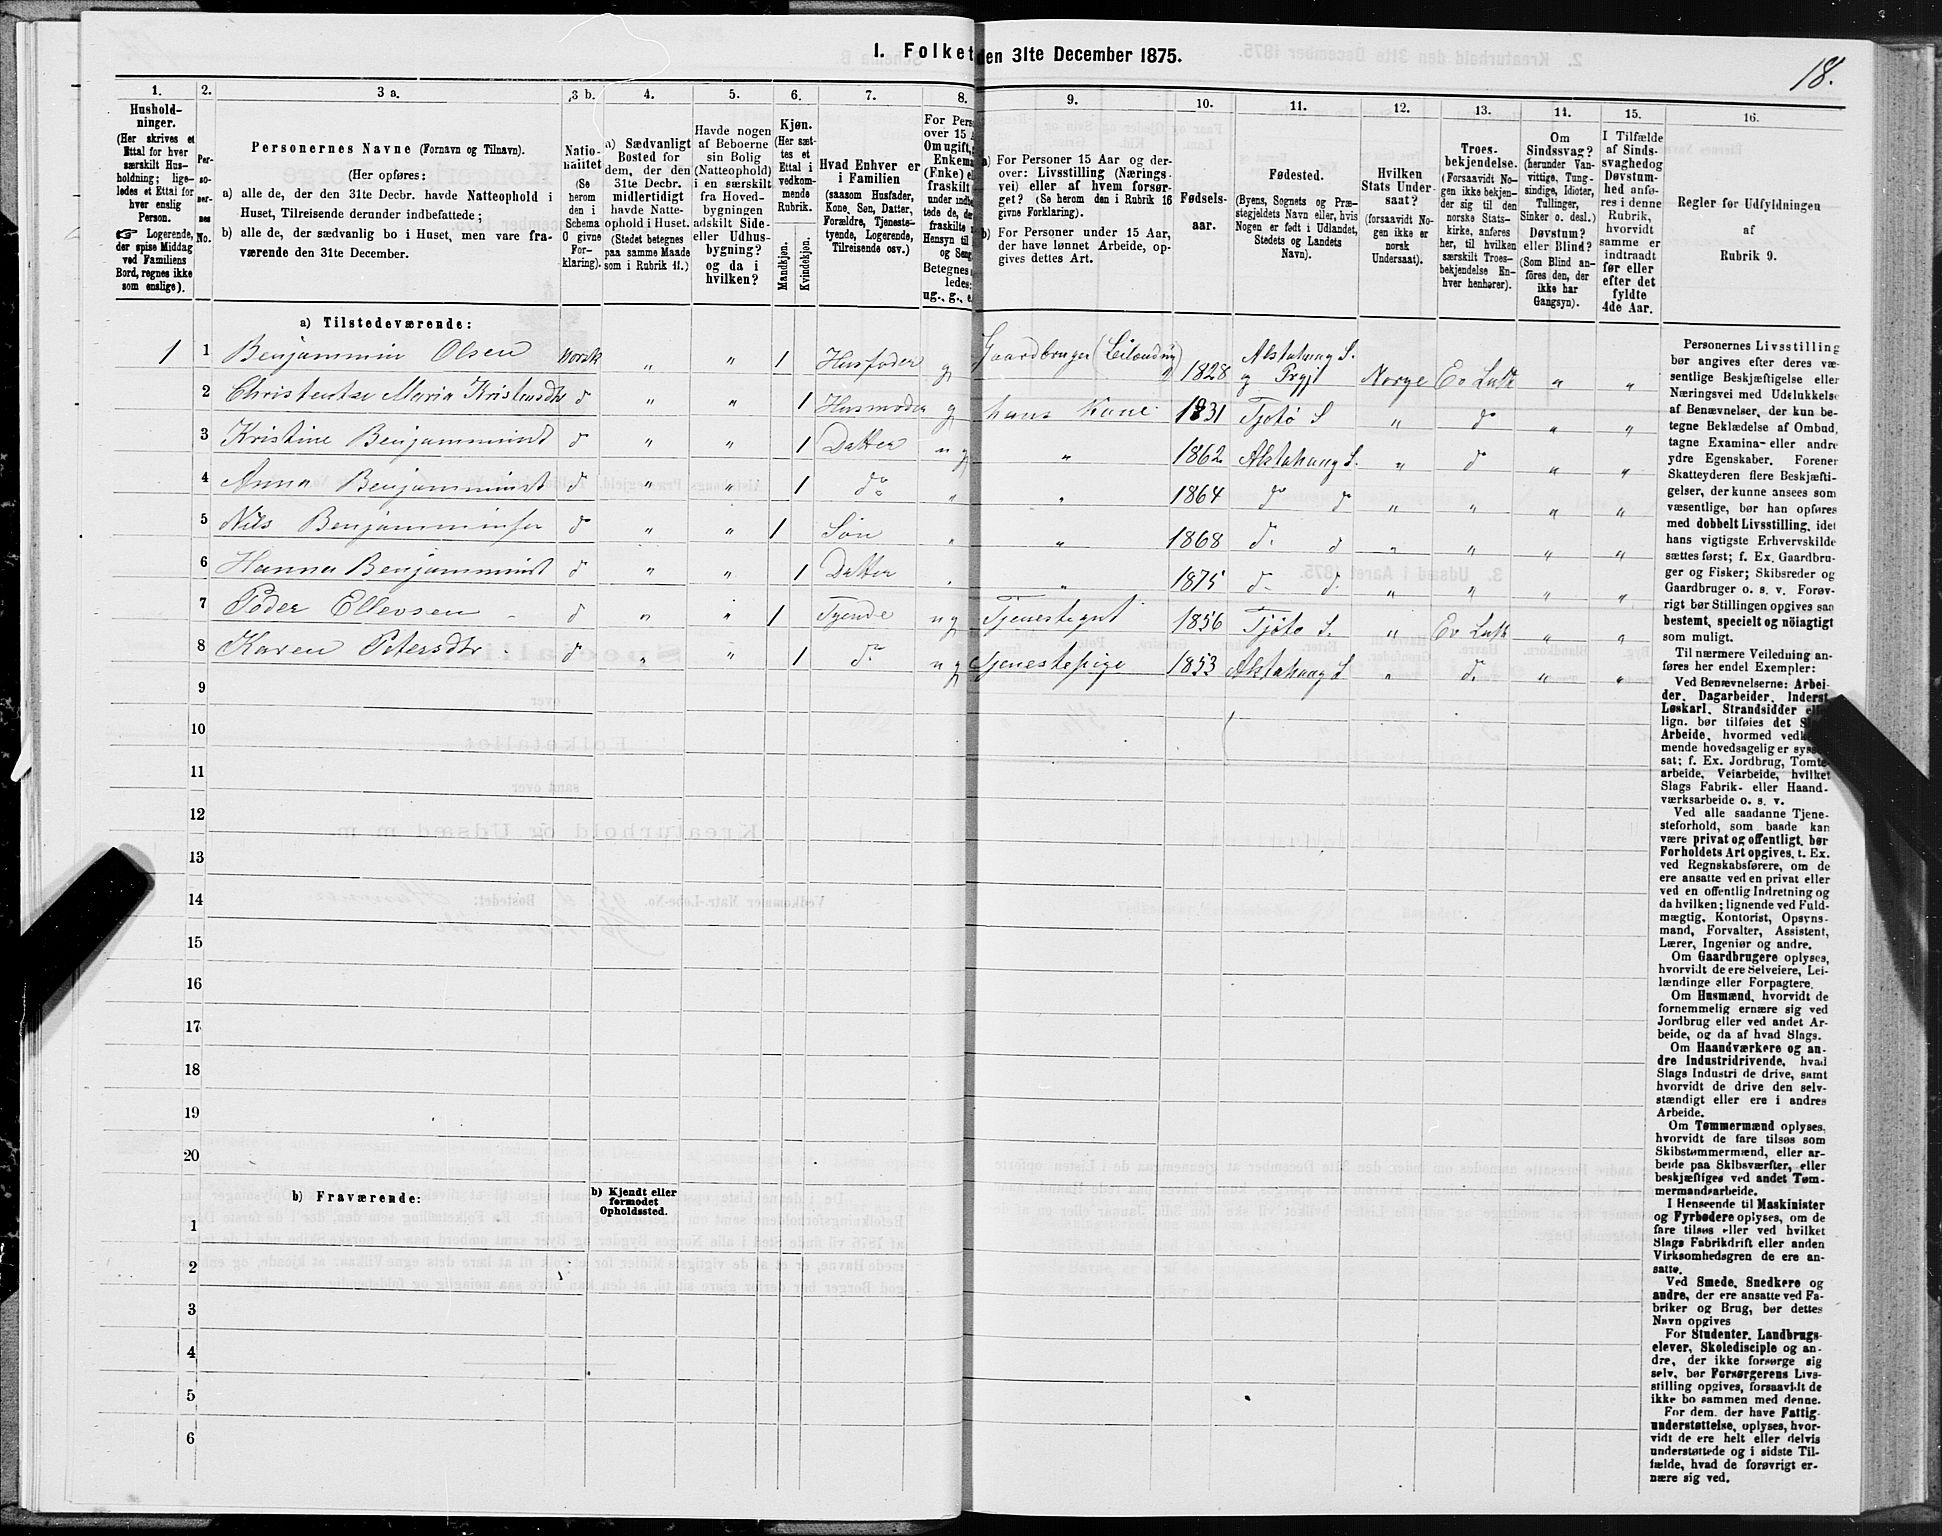 I. Folket den 31te December 1875.
18.
1.
Hushold-
ninger.
(Her skrives et
Ettal for hver
særskilt Hus-
holdning; lige-
ledes et Ettal for
hver enslig
Person.
☞ Logerende,
der spise Middag
ved Familiens
Bord, regnes ikke
som enslige).
2.
Per-
so-
ner-
nes
No.
3 a.
Personernes Navne (Fornavn og Tilnavn).
(Her opføres:
a) alle de, der den 31te Decbr. havde Natteophold i
Huset, Tilreisende derunder indbefattede;
b) alle de, der sædvanlig bo i Huset, men vare fra-
værende den 31te December.
3 b.
Natio-
nalitet
(Se
herom
den i
Schema
6 givne
For-
klaring).
4.
a) Sædvanligt
Bosted for
dem, der den
31te Decbr.
midlertidigt
havde Natte-
ophold i Huset.
(Stedet betegnes
paa samme Maade
som i Rubrik 11.)
5.
Havde nogen
af Beboerne
sin Bolig
(Natteophold)
i en særskilt
fra Hoved-
bygningen
adskilt Side-
eller Udhus-
bygning?
og da i
hvilken?
6.
Kjøn.
(Her sæt-
tes et
Ettal i
vedkom-
mende
Rubrik.
Mandkjøn.
Kvindekjøn.
7.
Hvad Enhver er
i Familien
(saasom Husfader,
Kone, Søn, Datter,
Forældre, Tjeneste-
tyende, Logerende,
Tilreisende osv.)
8.
For Pers
over 15
Om ugift,
Enkema
(Enke) e
fraskilt
under ind
tede de, de
fraskilte
Hensyn til
og Seng
Betegnes
ledes:
ug., g., e.
9.
a) For Personer 15 Aar og der-
over: Livsstilling (Nærings-
vei) eller af hvem forsør-
get? (Se herom den i Rubrik 16
givne Forklaring).
b) For Personer under 15 Aar,
der have lønnet Arbeide, op-
gives dettes Art.
10.
Fødsels-
aar.
11.
Fødested.
(Byens, Sognets og Præ-
stegjeldets Navn eller, hvis
Nogen er født i Udlandet,
Stedets og Landets
Navn).
12.
Hvilken
Stats Under-
saat?
(forsaavidt No-
gen ikke er
norsk
Undersaat).
13.
Troes-
bekjendelse.
(Forsaavidt No-
gen ikke bekjen-
der sig til den
norske Stats-
kirke, anføres
her, til hvilken
særskilt Troes-
bekjendelse En-
hver henhører).
14.
Om
Sindssvag?
(herunder Van-
vittige, Tung-
sindige, Idioter,
Tullinger,
Sinker o. desl.)
Døvstum?
eller Blind?
(Som Blind an-
føres den, der
ikke har
Gangsyn).
15.
I Tilfælde
af Sinds-
svaghed og
Døvstum-
hed anfø-
res i denne
Rubrik,
hvorvidt
samme er
indtraadt
før eller
efter det
fyldte
4de Aar.
16.
Regler for Udfyldningen
af
Rubrik 9.
a) Tilstedeværende:
1 1 Benjammin Olsen Norsk " " 1 Husfader g Gaardbruger (Leilænding) 1828 Alstahaug S. og Prgjl Norge Ev Luth " "
2 Christentse Maria Kristensdtr d " " 1 Husmoder g hans Kone 1831 Tjøtø S " do " "
3 Kristine Benjamminsd d " " 1 Datter ug " 1862 Alstahaug S. " d " "
4 Anna Benjamminsd d " " 1 do " " 1864 do d " " " "
5 Nils Benjamminsen d " " 1 Søn " " 1868 d. d " " " "
6 Hanna Benjamminsd d " " 1 Datter " " 1875 d. d. " " " "
7 Peder Ellevsen d " " 1 Tyende ug Tjenestegut 1856 Tjøtø S. " Ev Luth " "
8 Karen Petersdtr d " " 1 do ug Tjenestepige 1853 Alstahaug S " d. " "
9
10
11
12
13
14
15
16
17
18
19
20
b) Fraværende:
b) Kjendt eller
formodet
Opholdssted.
1
2
3
4
5
6
Personernes Livsstilling
bør angives efter deres væ-
sentlige Beskjæftigelse eller
Næringsvei med Udelukkelse
af Benævnelser, der kun be-
tegne Beklædelse af Ombud,
tagne Examina- eller andre
ydre Egenskaber. Forener
Skatteyderen flere Beskjæfti-
gelser, der kunne ansees som
væsentlige, bør han opføres
med dobbelt Livsstilling, idet
hans vigtigste Erhvervskilde
sættes først; f. Ex. Gaardbru-
ger og Fisker; Skibsreder og
Gaardbruger o. s. v. Forøv-
rigt bør Stillingen opgives saa
bestemt, specielt og nöiagtigt
som muligt.
Til nærmere Veiledning an-
føres her endel Exempler:
Ved Benævnelserne: Arbei-
der, Dagarbeider, Inderst,
Løskarl, Strandsidder
lign. bør tilføies det
Arbeide, hvormed
mende hovedsagelig er
sat; f. Ex. Jordbrug, Tomte-
arbeide, Veiarbeide, hvilket
Slags Fabrik- eller Haand-
værksarbeide o. s. v.
Ved alle saadanne Tjene-
steforhold, som baade kan
være privat og offentligt, bør
Forholdets Art opgives, t. Ex.
ved Regnskabsførere, om de
ere ansatte ved en privat eller
ved en offentlig Indretning og
da hvilken; lignende ved Fuld-
mægtig, Kontorist, Opsyns-
mand, Forvalter, Assistent,
Lærer, Ingeniør og andre.
Om Gaardbrugere oplyses,
hvorvidt de ere Selveiere, Lei-
lændinge eller Forpagtere.
Om Husmænd, hvorvidt de
fornemmelig ernære sig ved
Jordbrug eller ved andet Ar-
beide, og da af hvad Slags.
Om Haandværkere og an-
dre Industridrivende, hvad
Slags Industri de drive, samt
hvorvidt de drive den selv-
stændigt eller ere i andres
Arbeide.
Om Tømmermænd oplyses,
hvorvidt de fare tilsøs som
Skibstømmermænd, eller ar-
beide paa Skibsværfter, eller
beskjæftiges ved andet Tøm-
mermandsarbeide.
I Henseende til Maskinister
og Fyrbødere oplyses, om de
fare tilsøs eller ved hvilket
Slags Fabrikdrift eller anden
Virksomhedsgren de ere an-
satte.
Ved Smede, Snedkere og
andre, der ere ansatte ved Fa-
briker og Brug, bør dettes
Navn opgives
For Studenter, Landbrugs-
elever, Skoledisciple og an-
dre, der ikke forsørge sig
selv, bør Forsørgerens Livs-
stilling opgives, forsaavidt de
ikke bo sammen med denne.
For dem, der have Fattig-
understøttelse, oplyses, hvor-
vidt de ere helt eller delvis
understøttede og i sidste Til-
fælde, hvad de forøvrigt er-
nære sig ved.